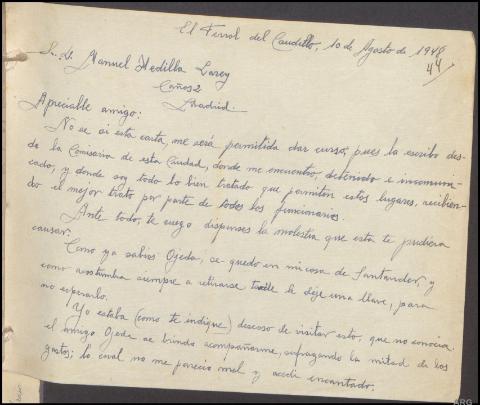 El Ferrol del Caudillo, 10 de Agosto de 1948
44
Sr. D. Manuel Hedilla Larey
Caños 2
Madrid.
Apreciable amigo:
No se si esta carta, me será permitida dar curso, pues la escribo des-
de la Comisaria de esta Ciudad, donde me encuentro, detenido e incomuni-
cado, y donde soy todo lo bien tratado que permiten estos lugares, recibien-
do el mejor trato por parte de todos los funcionarios.
Ante todo, te ruego dispenses la molestia que esta te pudiera
causar.
Como ya sabias Ojeda, se quedo en mi casa de Santander, y
como acostumbra siempre a retirarse tarde le deje una llave, para
no esperarlo.
Yo estaba (como te indique) deseoso de visitar esto, que no conocia.
el amigo Ojeda se brinda acompañarme, sufragando la mitad de los
gastos; lo cual no me parecio mal y accedi encantado.
ARG